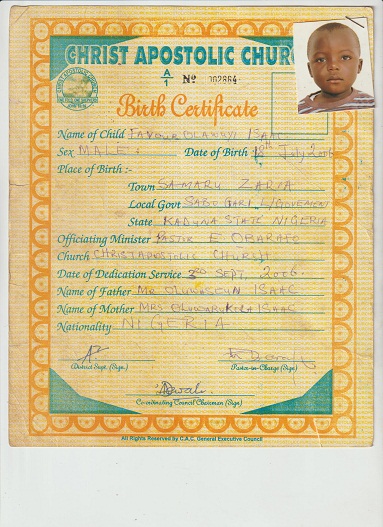 CHRIST APOSTOLIC CHURCH
A/1 № 062864
Birth Certificate
Name of Child FAVOUR OLANIYI ISAAC
Sex MALE. Date of Birth 18th July 2006
Place of Birth :-
Town SAMARU ZARIA
Local Govt SABO GARI L/GOVEMENT
State KADUNA STATE NIGERIA
Officiating Minister PASTOR E OBARATO
Church CHRIST APOSTOLIC CHURSH
Date of Dedication Service 3RD SEPT, 2006.
Name of Father MR OLUWASEUN ISAAC
Name of Mother MRS OLUWABUKOLA ISAAC
Nationality NIGERIA
District Supt. (Sign.) Pastor-in-Charge (Sign.)
Co-ordinating Council Chairman (Sign)
All Rights Reserved by C.A.C. General Executive Council